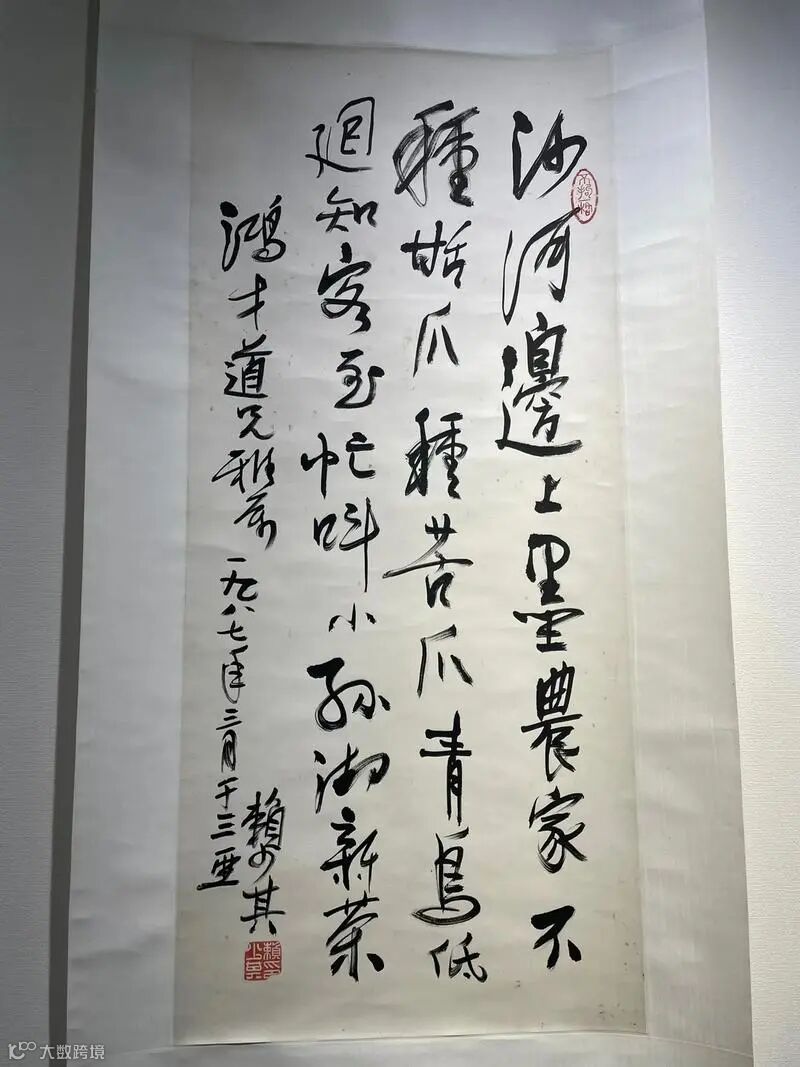 沙河邊上墨農家不
種甜瓜種苦瓜青鳥低
迴知客至忙呌小孫沏新茶
鴻才道兄雅屬 一九八七年三月于三亜
賴少其
大数跨境